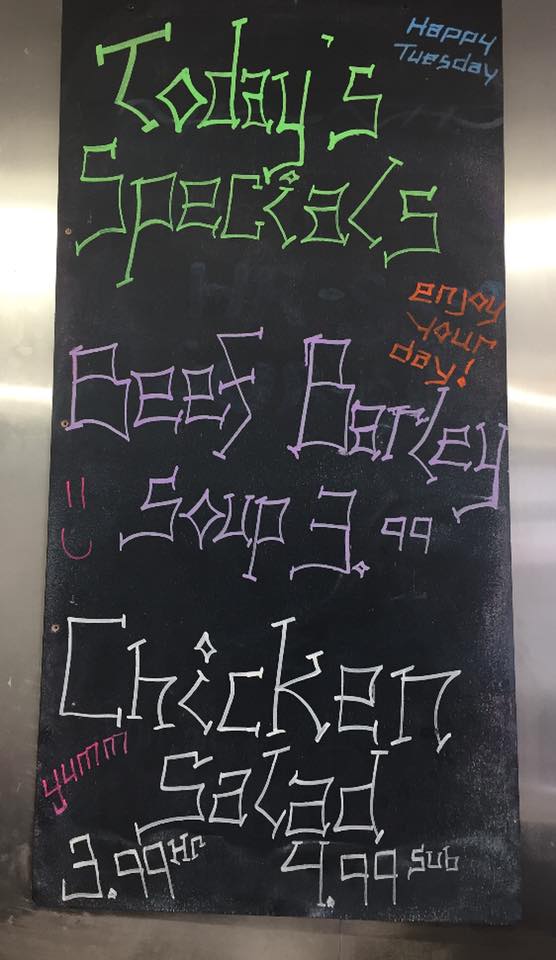 Today's
Happy
Tuesday
Specials
enjoy
your
day!
Beef Barley
Soup 3.99
=)
Chicken
yumm
Salad
3.99 Hr 4.99 Sub